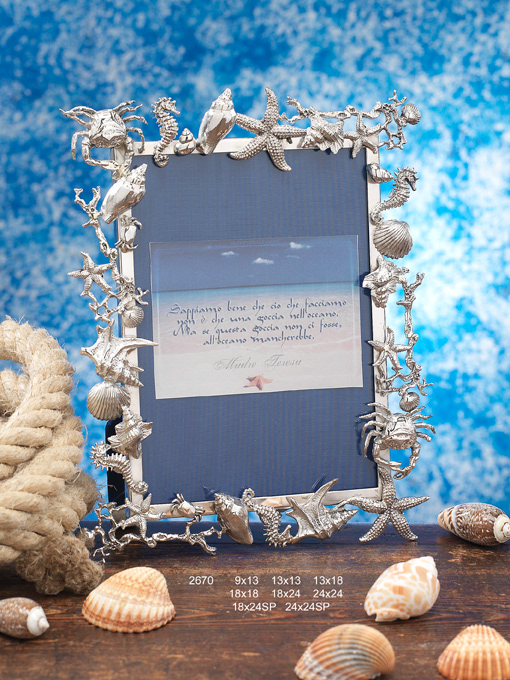 Sappiamo bene che ciò che facciamo
non è che una goccia nell'oceano.
Ma se questa goccia non ci fosse,
all'oceano mancherebbe.
Madre Teresa
2670 9x13 13x13 13x18
18x18 18x24 24x24
18x24SP 24x24SP